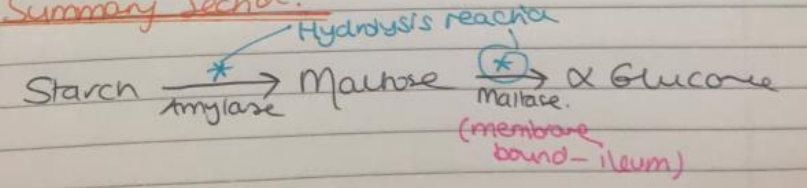 Summary Section.
Hydrolysis reaction
Starch * → Maltose * → α Glucose
Amylase Maltase.
(membrane
bound - ileum)